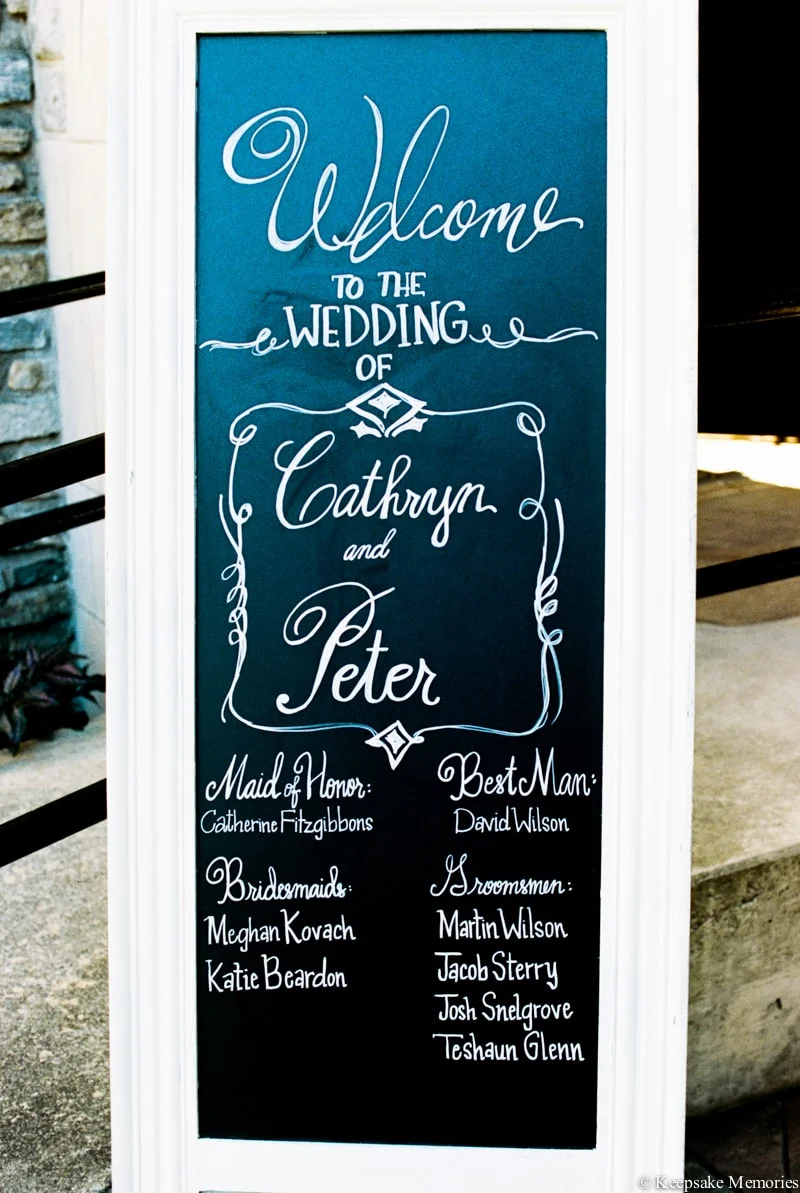 Welcome
TO THE
WEDDING
OF
Cathryn
and
Peter
Maid of Honor:
Catherine Fitzgibbons
Bridesmaids:
Meghan Kovach
Katie Beardon
Best Man:
David Wilson
Groomsmen:
Martin Wilson
Jacob Sterry
Josh Snelgrove
Teshaun Glenn
© Keepsake Memories